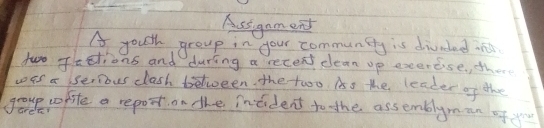 Assignment
A youth group in your community is divided into
two factions and during a recent clean up exercise, there
was a serious clash between the two As the leader of the
group write a report on the incident to the assemblyman of your
area.